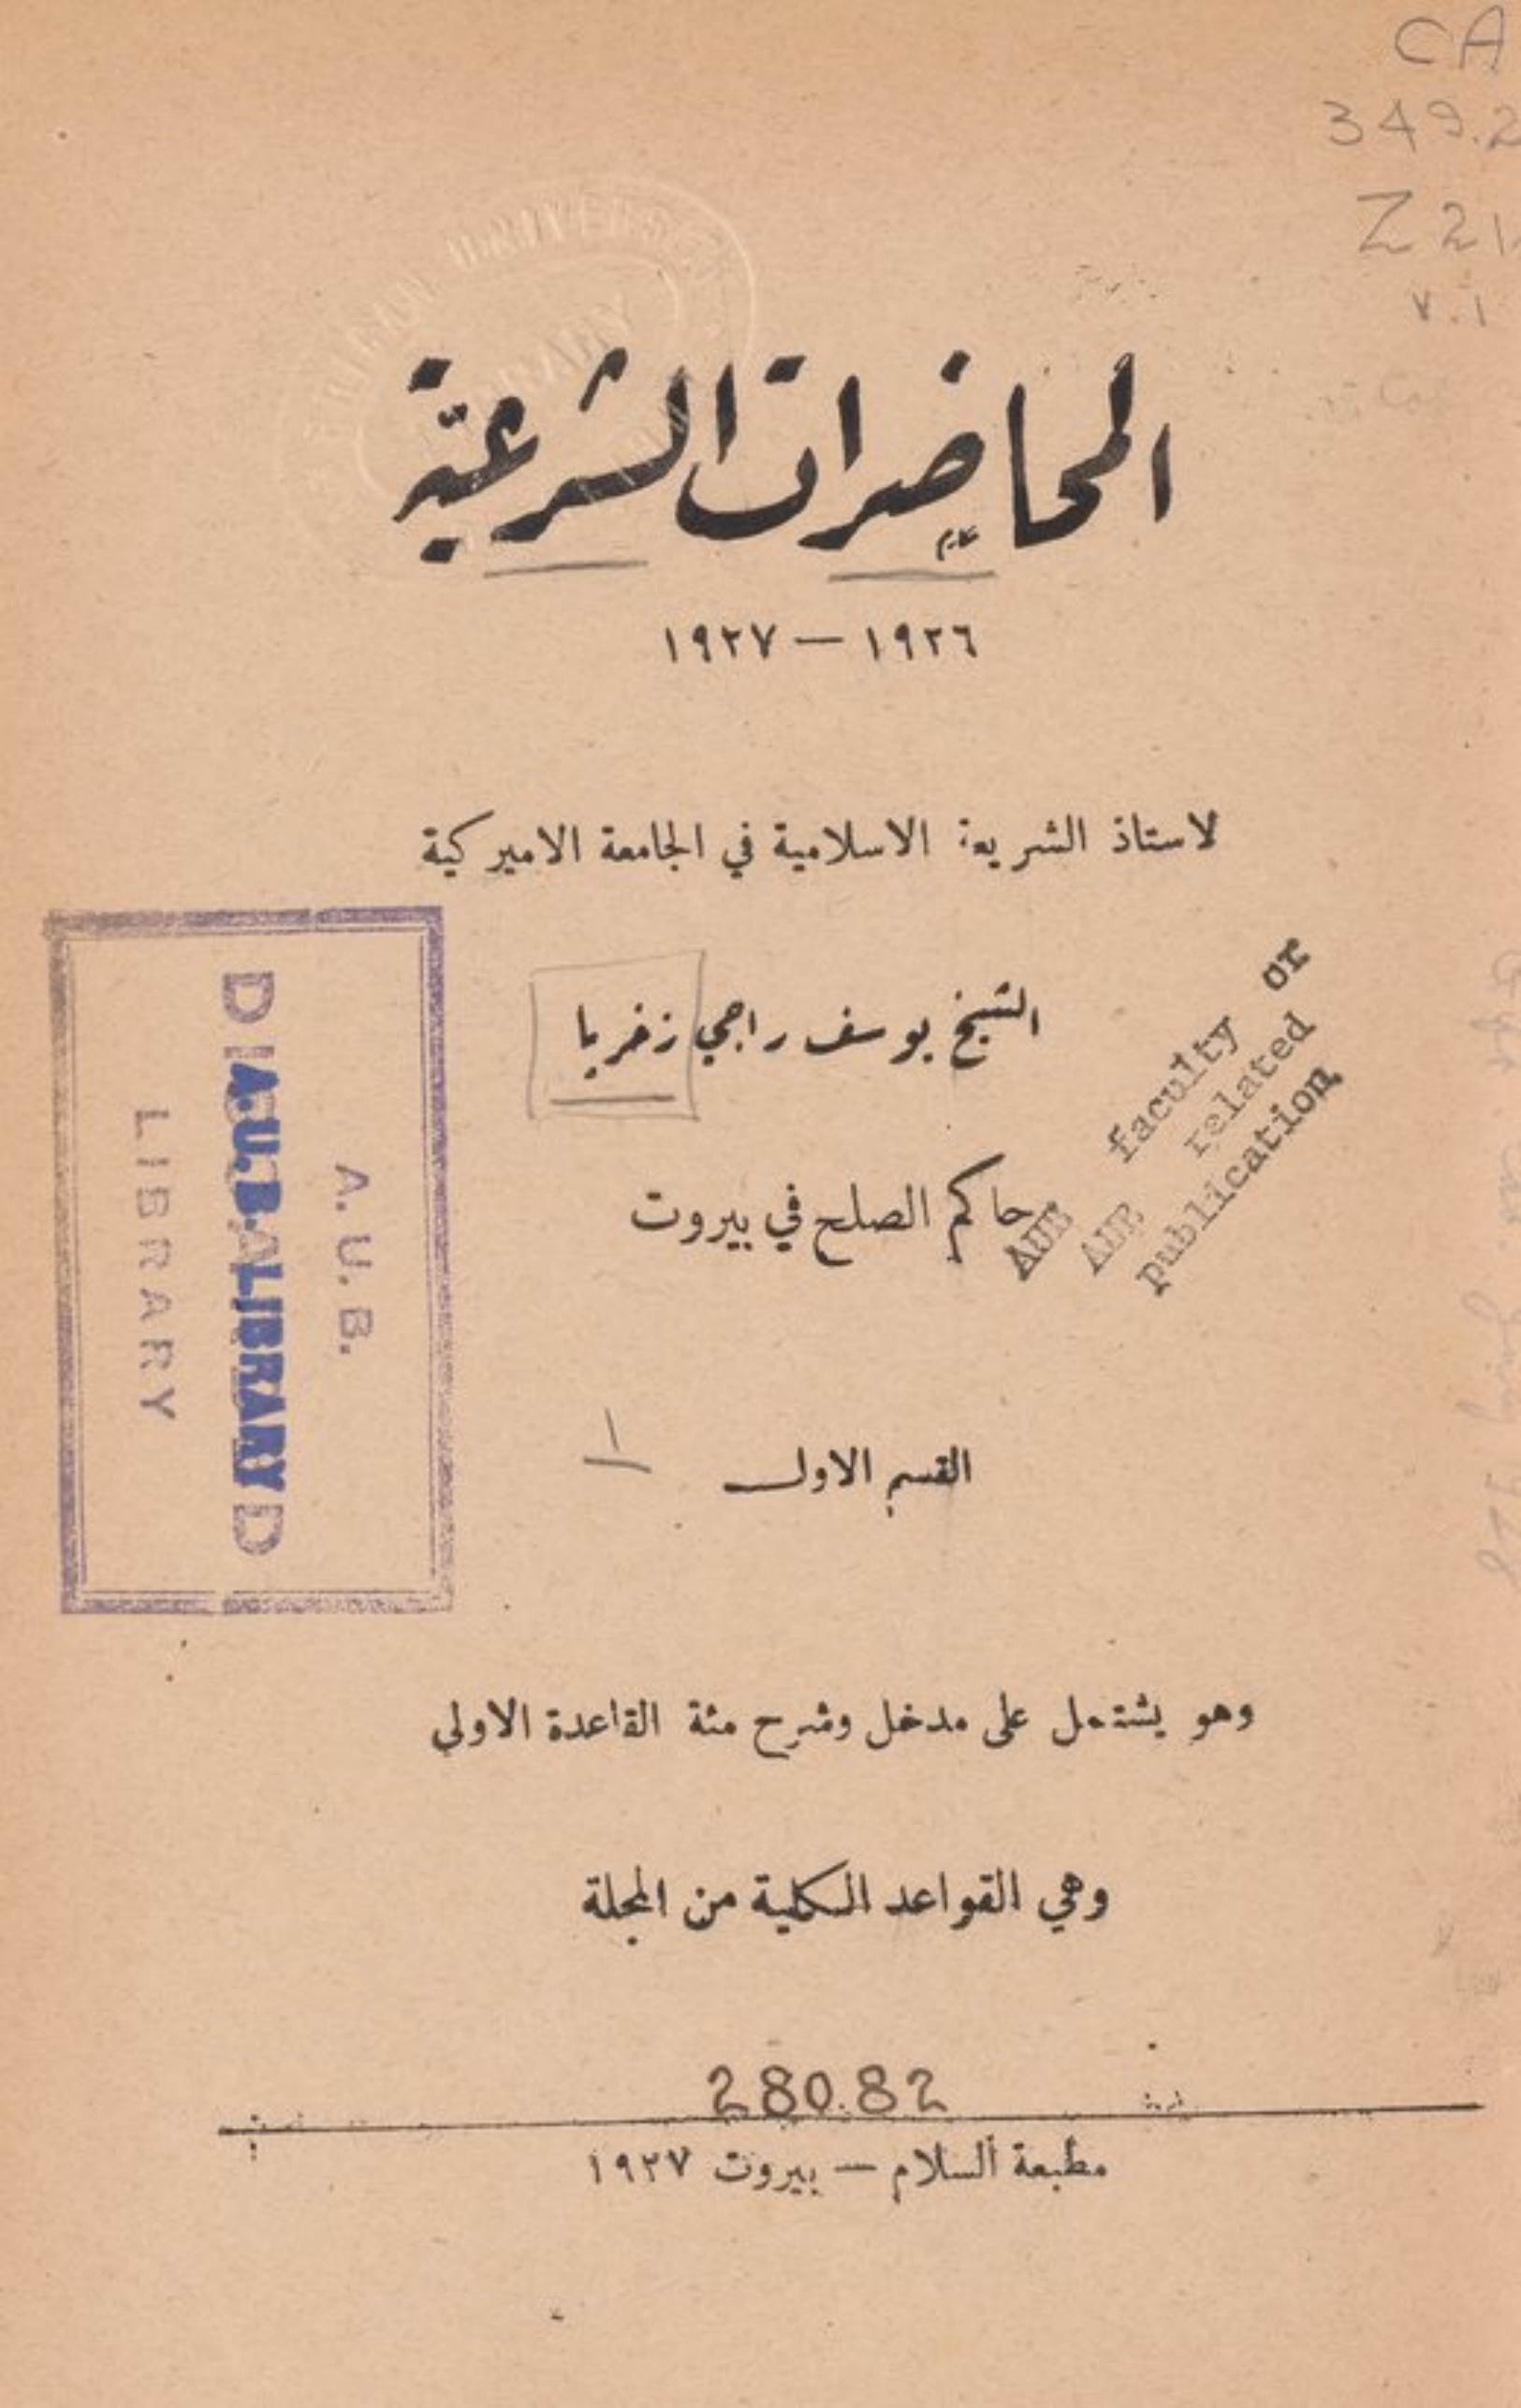 CA
349.2
Z21
v.1
المحاضرات الشرعيّة
١٩٢٦ — ١٩٢٧
لاستاذ الشريعة الاسلامية في الجامعة الاميركية
الشيخ يوسف راجي زخريا
حاكم الصلح في بيروت
AUB faculty or
AUB related
publication
A. U. B.
A.U.B. LIBRARY
LIBRARY
القسم الاول
١
وهو يشتمل على مدخل وشرح مئة القاعدة الاولى
وهي القواعد الكلية من المجلة
28082
مطبعة السلام — بيروت ١٩٢٧